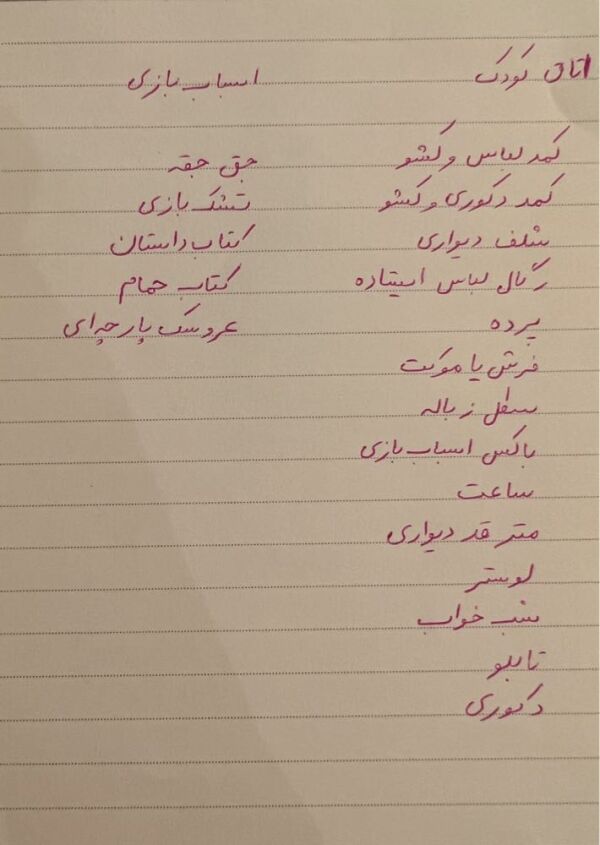 اتاق کودک
کمد لباس و کشو
کمد دکوری و کشو
شلف دیواری
رگال لباس ایستاده
پرده
فرش یا موکت
سطل زباله
باکس اسباب بازی
ساعت
متر قد دیواری
لوستر
شب خواب
تابلو
دکوری
اسباب بازی
جق جقه
تشک بازی
کتاب داستان
کتاب حمام
عروسک پارچه‌ای